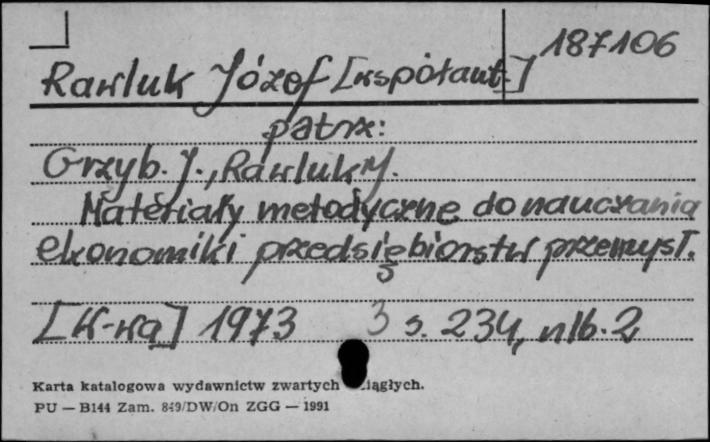 187106
Rawluk Józef [współaut.]
patrz:
Grzyb. J., Rawluk J.
Materiały metodyczne do nauczania
ekonomiki przedsiębiorstw przemysł.
[W-wa] 1973 s. 234, nlb. 2
Karta katalogowa wydawnictw zwartych
PU — B144 Zam. 849/DW/On ZGG — 1991